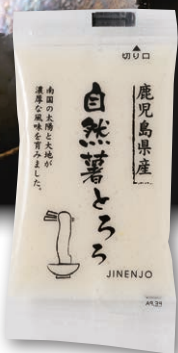 切り口
鹿児島県産
自然薯とろろ
南国の太陽と大地が
濃厚な風味を育みました。
JINENJO